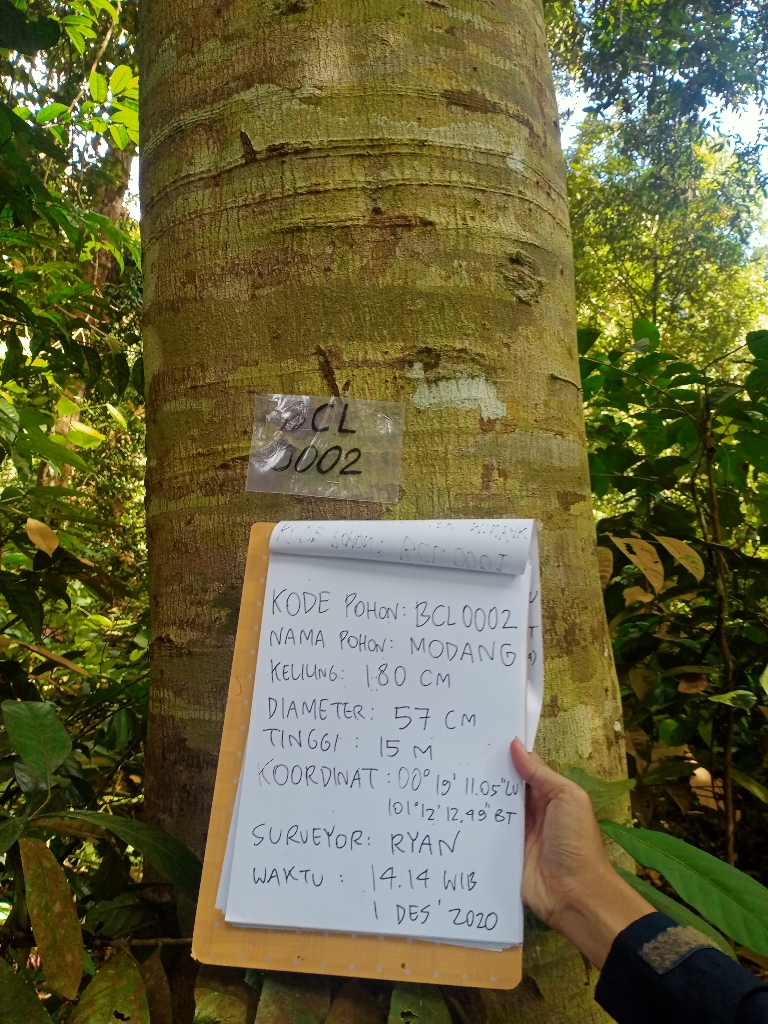 BCL
0002
KODE POHON: BCL0002
NAMA POHON: MODANG
KELILING: 180 CM
DIAMETER: 57 CM
TINGGI : 15 M
KOORDINAT : 00° 19' 11.05" LU
101° 12' 12,49" BT
SURVEYOR: RYAN
WAKTU : 14.14 WIB
1 DES' 2020